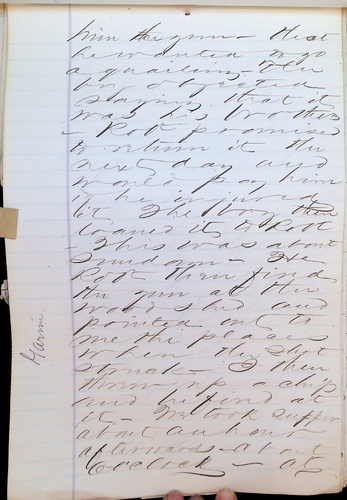 him the gun - that
he wanted to go
a quailing - the
boy objected
saying that it
was his brothers
- Rott promised
to return it the
next day and
would pay him
if he injured
it The boy then
loaned it to Rott
- This was about
Sundown - He
Rott then fired
the gun at the
wood shed and
pointed out to
me the places
where the shot
struck - I then
threw up a chip
and he fired at
it - We took supper
about an hour
afterwards - about
6 oclock - at
Garin